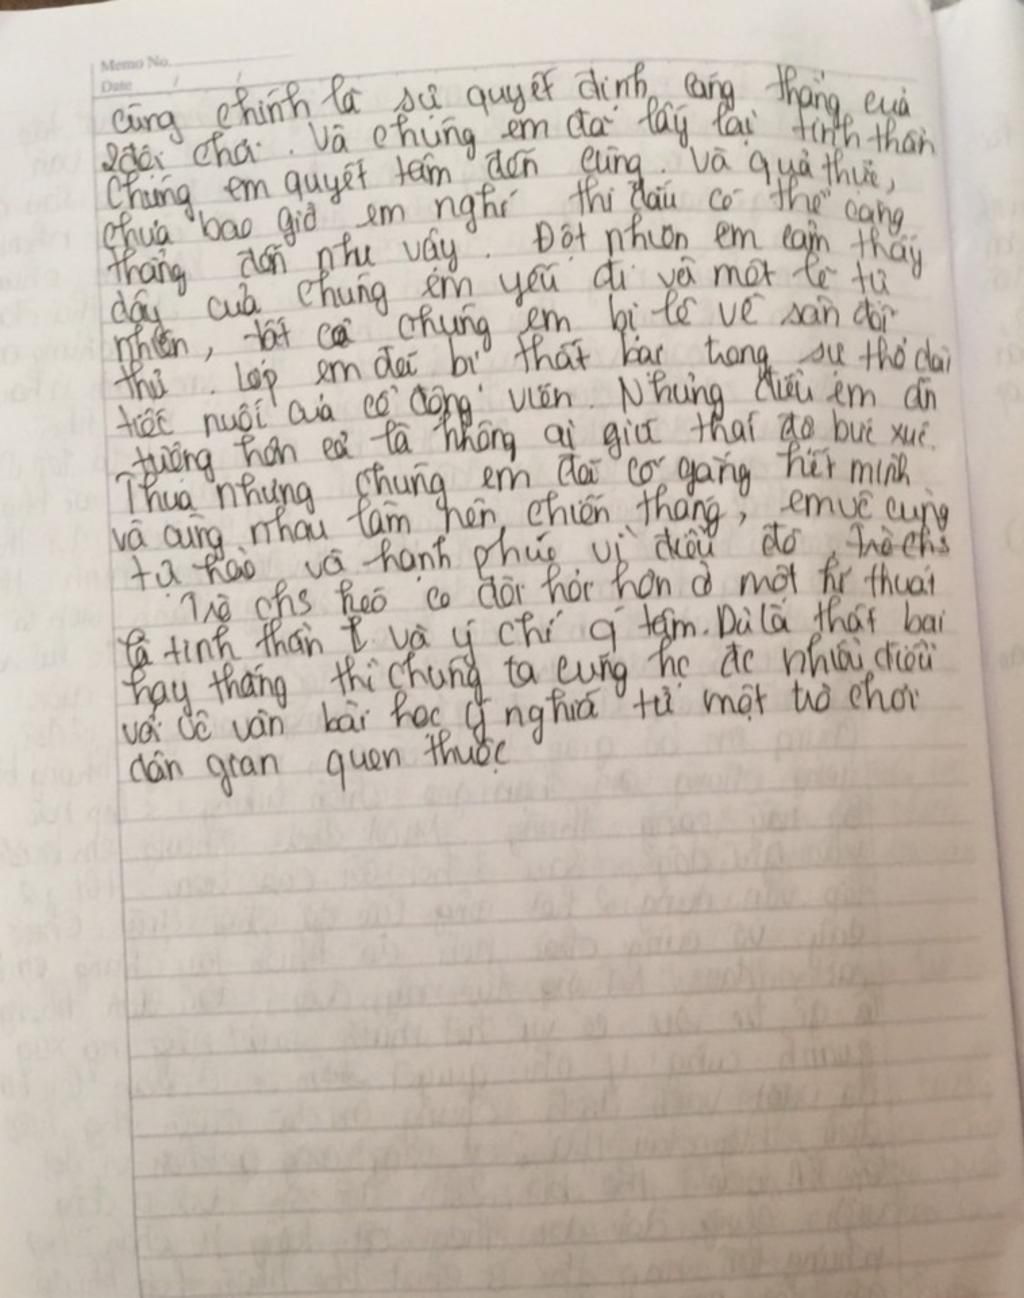 Memo No.
Date / /
cũng chính là sự quyết định căng thẳng của
2 đội chơi. Và chúng em đã lấy lại tinh thần
Chúng em quyết tâm đến cùng. Và quả thực,
chưa bao giờ em nghĩ thi đấu có thể căng
thẳng đến như vậy. Đột nhiên em cảm thấy
dây của chúng em yếu đi và một lẽ tự
nhiên, tất cả chúng em bị lê về sân đối
thủ. Lớp em đã bị thất bại trong sự thở dài
tiếc nuối của cổ động viên. Nhưng điều em ấn
tượng hơn cả là không ai giữ thái độ bực xúc.
Thua nhưng chúng em đã cố gắng hết mình
và cùng nhau làm nên chiến thắng, em vô cùng
tự hào và hạnh phúc vì điều đó, trò chs
Trò chs kéo co đòi hỏi hơn ở một kĩ thuật
là tinh thần và ý chí q tâm. Dù là thất bại
hay thắng thì chúng ta cũng hc đc nhiều điều
với vô vàn bài học ý nghĩa từ một trò chơi
dân gian quen thuộc